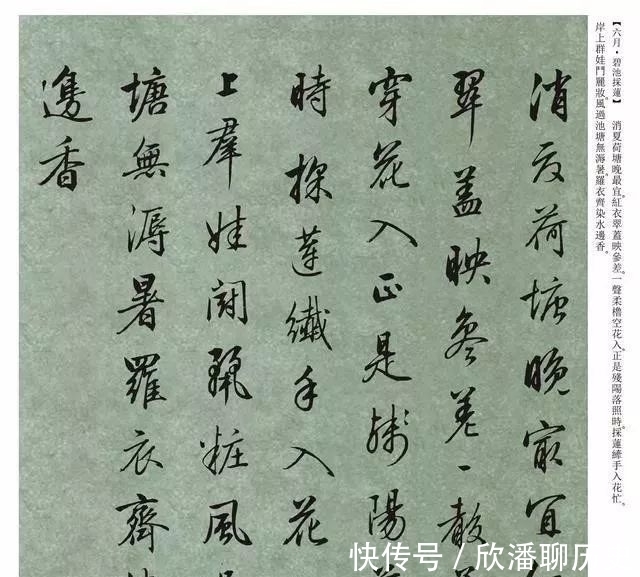 【六月·碧池採蓮】 消夏荷塘晚最宜。紅衣翠蓋映參差。一聲柔櫓空花入。正是殘陽落照時。採蓮縴手入花忙。
岸上群娃鬥麗妝。風過池塘無海暑。羅衣齊染水邊香。
消夏荷塘晚最宜
翠盖映參差一聲
穿花入正是殘陽
時採蓮纖手入花
上羣娃鬥麗粧風
塘無溽暑羅衣齊
邊香
快传号／欣潘聊历